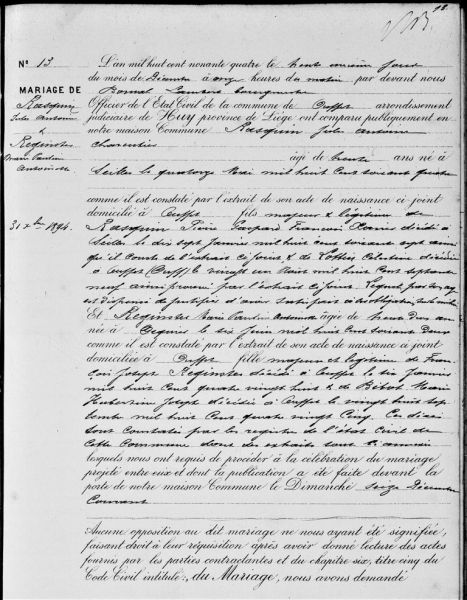 18.
N° 13
MARIAGE DE
Rasquin
Jules Antoine
&
Reginster
Marie Pauline
Antoinette
31 xbre 1894.
L'an mil huit cent nonante quatre le trente unième jour
du mois de Décembre à onze heures du matin par devant nous
Bonnal
Officier de l'État Civil de la commune de Ouffet arrondissement
judiciaire de Huy province de Liége, ont comparu publiquement en
notre maison Commune Rasquin Jules Antoine
charretier
âgé de trente ans né à
Seilles le quatorze Mai mil huit cent soixante quatre
comme il est constaté par l'extrait de son acte de naissance ci joint
domicilié à Ouffet fils majeur & légitime de
Rasquin Pierre Gaspard François décédé à
Seilles le dix sept Janvier mil huit cent soixante sept ainsi
qu'il conste de l'extrait ci joint & de Célestine décédée
à Ouffet le vingt un Mars mil huit cent septante
neuf ainsi prouvé par l'extrait ci joint.
est dispensé de justifier d'avoir satisfait à
Et Reginster Marie Pauline Antoinette âgée de trente deux ans
née à le six Juin mil huit cent soixante deux
comme il est constaté par l'extrait de son acte de naissance ci joint
domiciliée à Ouffet fille majeure et légitime de Fran
çois Joseph Reginster décédé à Ouffet le six Janvier
mil huit cent quatre vingt huit & de Marie
Hubertine Joseph décédée à Ouffet le vingt huit sep
tembre mil huit cent quatre vingt cinq. Ces décès
sont constatés par les registres de l'état civil de
cette Commune dont des extraits sont ci annexés
lesquels nous ont requis de procéder à la célébration du mariage
projeté entre eux et dont la publication a été faite devant la
porte de notre maison Commune le Dimanche seize Décembre
Courant
Aucune opposition au dit mariage ne nous ayant été signifiée,
faisant droit à leur réquisition après avoir donné lecture des actes
fournis par les parties contractantes et du chapitre six, titre cinq du
Code Civil intitulé: du Mariage, nous avons demandé